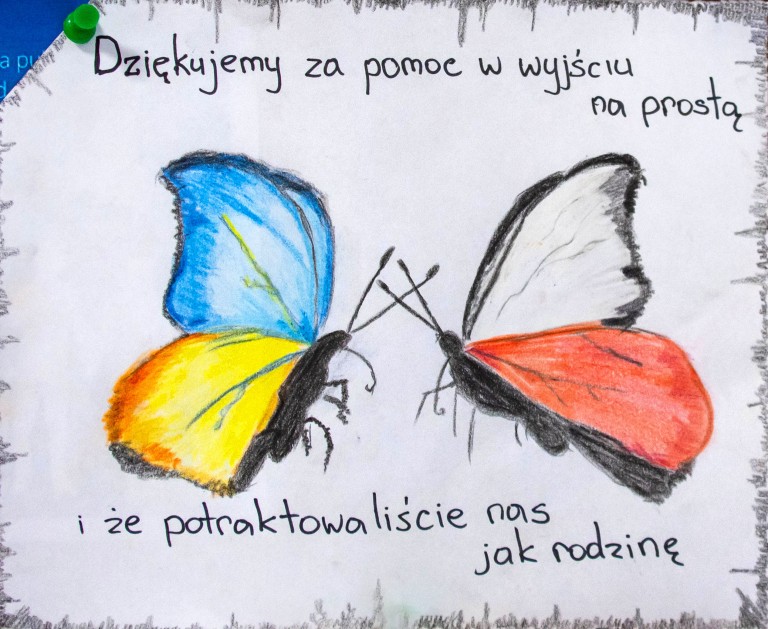 Dziękujemy za pomoc w wyjściu
na prostą
i że potraktowaliście nas
jak rodzinę